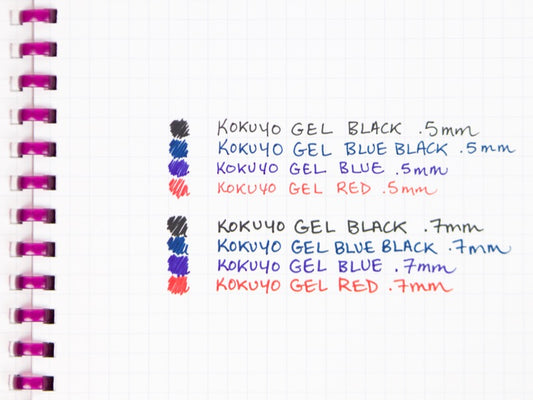 KOKUYO GEL BLACK .5mm
KOKUYO GEL BLUE BLACK .5mm
KOKUYO GEL BLUE .5mm
KOKUYO GEL RED .5mm
KOKUYO GEL BLACK .7mm
KOKUYO GEL BLUE BLACK .7mm
KOKUYO GEL BLUE .7mm
KOKUYO GEL RED .7mm